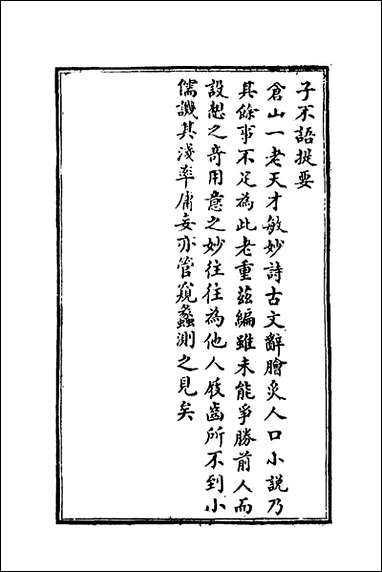 子不語提要
倉山一老天才敏妙詩古文辭膾炙人口小說乃
其餘事不足為此老重茲編雖未能爭勝前人而
設想之奇用意之妙往往為他人屐齒所不到小
儒譏其淺率庸妄亦管窺蠡測之見矣